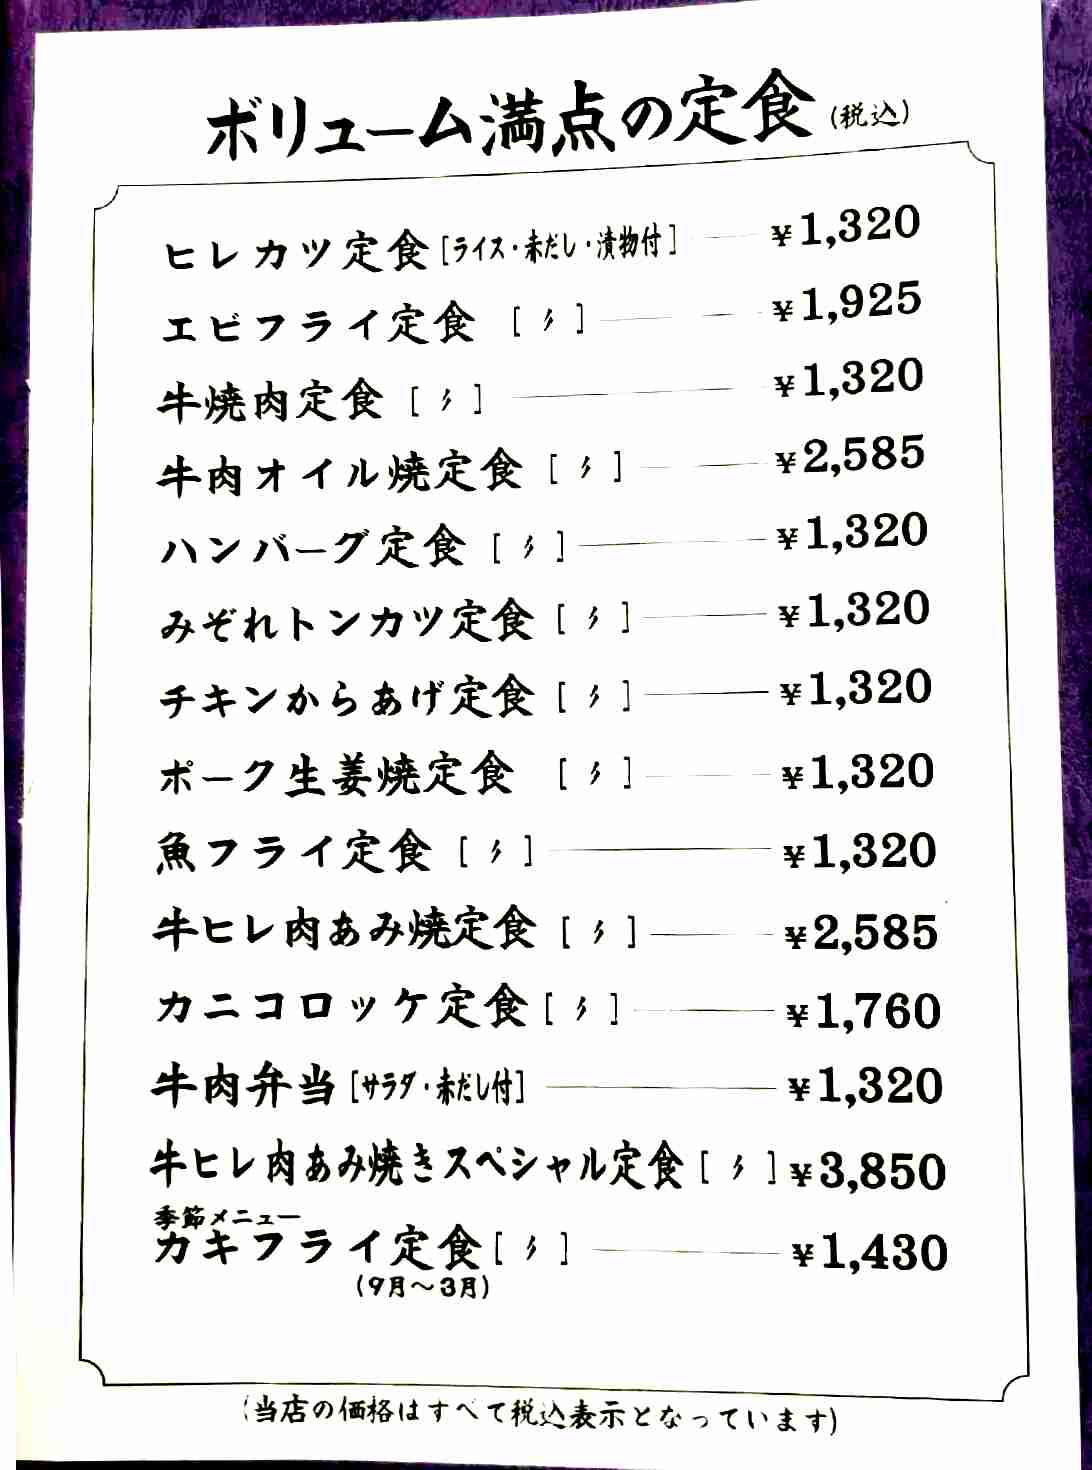 ボリューム満点の定食(税込)
ヒレカツ定食[ライス・赤だし・漬物付] ¥1,320
エビフライ定食 [ 〃 ] ¥1,925
牛焼肉定食 [ 〃 ] ¥1,320
牛肉オイル焼定食 [ 〃 ] ¥2,585
ハンバーグ定食 [ 〃 ] ¥1,320
みぞれトンカツ定食 [ 〃 ] ¥1,320
チキンからあげ定食 [ 〃 ] ¥1,320
ポーク生姜焼定食 [ 〃 ] ¥1,320
魚フライ定食 [ 〃 ] ¥1,320
牛ヒレ肉あみ焼定食 [ 〃 ] ¥2,585
カニコロッケ定食 [ 〃 ] ¥1,760
牛肉弁当[サラダ・赤だし付] ¥1,320
牛ヒレ肉あみ焼きスペシャル定食 [ 〃 ] ¥3,850
季節メニュー
カキフライ定食[ 〃 ] ¥1,430
(9月〜3月)
(当店の価格はすべて税込表示となっています)